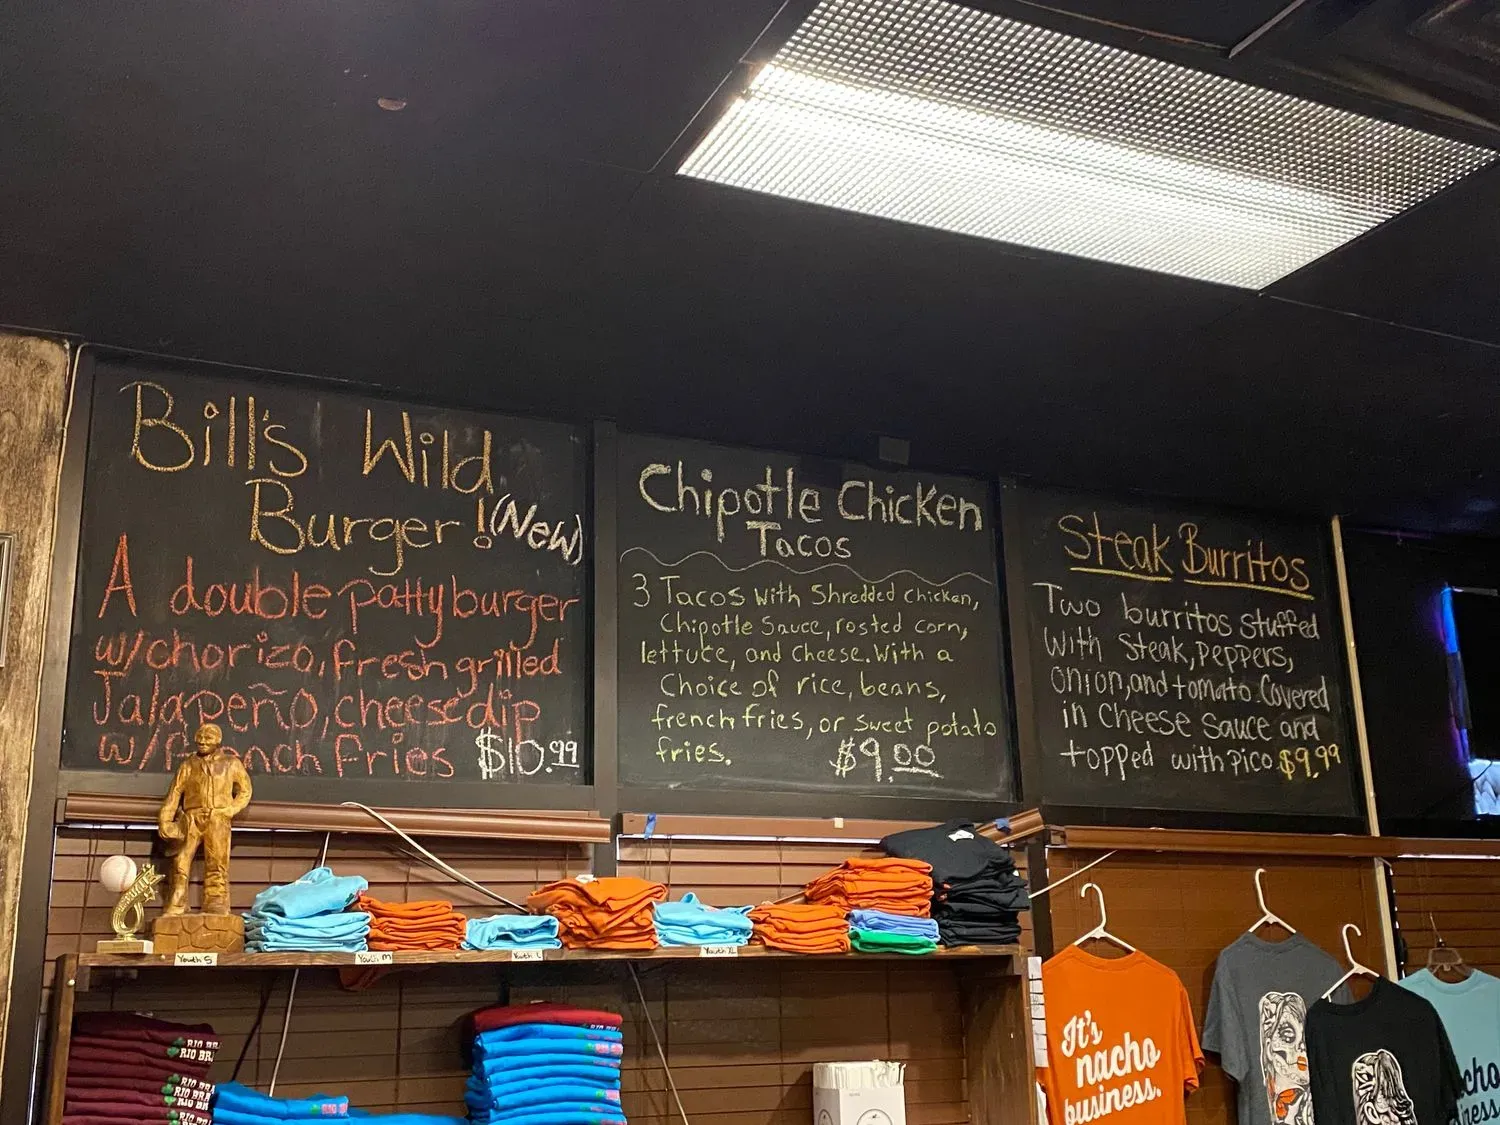 Bill's Wild
Burger! (New)
A double patty burger
w/chorizo, fresh grilled
Jalapeño, cheese dip
w/french fries $10.99
Chipotle Chicken
Tacos
3 Tacos with Shredded chicken,
Chipotle Sauce, rosted corn,
lettuce, and cheese. With a
Choice of rice, beans,
french fries, or sweet potato
fries. $9.00
Steak Burritos
Two burritos stuffed
with steak, peppers,
onion, and tomato. Covered
in cheese sauce and
topped with pico. $9.99
Youth S
Youth M
Youth L
Youth XL
RIO BRA
RIO BR
RIO BRA
RIO BR
It's
nacho
business.